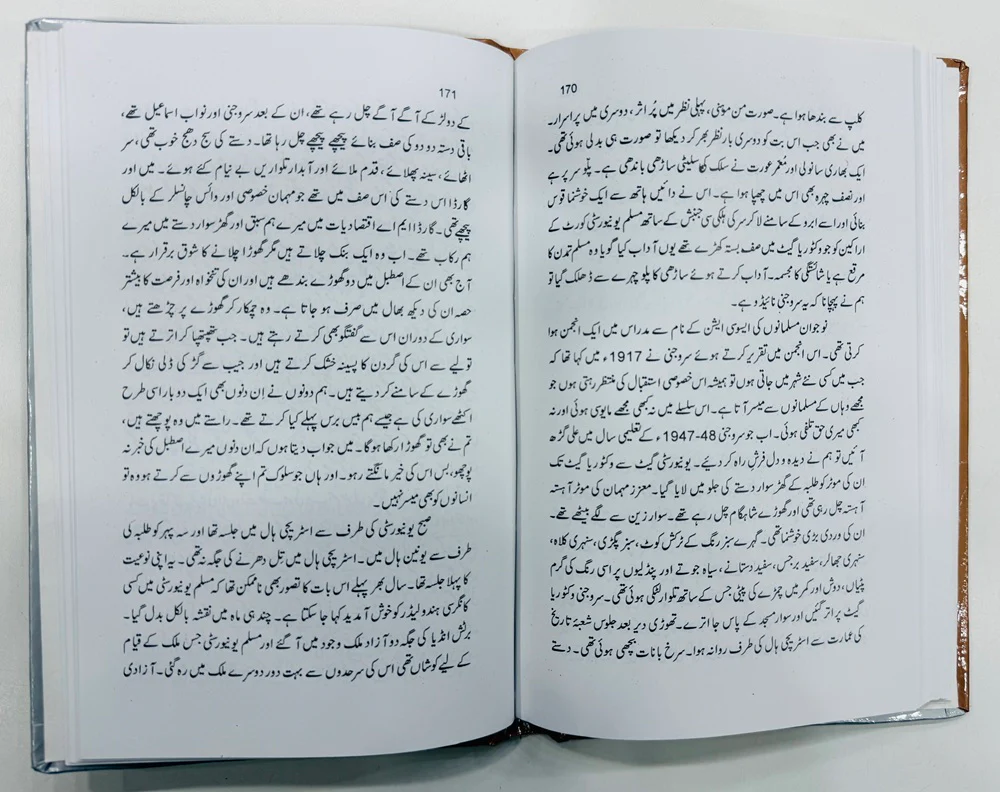 170
کلپ سے بندھا ہوا ہے۔ صورت من موہنی، پہلی نظر میں پُر اثر، دوسری میں پراسرار۔
میں نے بھی جب اس بت کو دوسری بار نظر بھر کر دیکھا تو صورت ہی بدلی ہوئی تھی۔
ایک بھاری سانولی اور معمر عورت نے سلک کی سلیٹی ساڑھی باندھی ہے۔ پلو سر پر ہے
اور نصف چہرہ بھی اس میں چھپا ہوا ہے۔ اس نے دائیں ہاتھ سے ایک خوشنما قوس
بنائی اور اسے ابرو کے سامنے لا کر سر کی ہلکی سی جنبش کے ساتھ مسلم یونیورسٹی کورٹ کے
اراکین کو جو وکٹوریا گیٹ میں صف بستہ کھڑے تھے یوں آداب کیا گویا وہ مسلم تمدن کا
مرقع ہے یا شائستگی کا مجسمہ۔ آداب کرتے ہوئے ساڑھی کا پلو چہرے سے ڈھلک گیا تو
ہم نے پہچانا کہ یہ سروجنی نائیڈو ہے۔
نوجوان مسلمانوں کی ایسوسی ایشن کے نام سے مدراس میں ایک انجمن ہوا
کرتی تھی۔ اس انجمن میں تقریر کرتے ہوئے سروجنی نے 1917ء میں کہا تھا کہ
جب میں کسی نئے شہر میں جاتی ہوں تو ہمیشہ اس خصوصی استقبال کی منتظر رہتی ہوں جو
مجھے وہاں کے مسلمانوں سے میسر آتا ہے۔ اس سلسلے میں نہ کبھی مجھے مایوسی ہوئی اور نہ
کبھی میری حق تلفی ہوئی۔ اب جو سروجنی 48-1947ء کے تعلیمی سال میں علی گڑھ
آئیں تو ہم نے دیدہ و دل فرشِ راہ کر دیئے۔ یونیورسٹی گیٹ سے وکٹوریا گیٹ تک
ان کی موٹر کو طلبہ کے گھڑ سوار دستے کی جلو میں لایا گیا۔ معزز مہمان کی موٹر آہستہ
آہستہ چل رہی تھی اور گھوڑے شاہگام چل رہے تھے۔ سوار زین سے لگے بیٹھے تھے۔
ان کی وردی بڑی خوشنما تھی۔ گہرے سبز رنگ کے ٹرکش کوٹ، سبز پگڑی، سنہری کلاہ،
سنہری جھالر، سفید برجس، سفید دستانے، سیاہ جوتے اور پنڈلیوں پر اسی رنگ کی گرم
پٹیاں، دوش اور کمر میں چمڑے کی پیٹی جس کے ساتھ تلوار لٹکی ہوئی تھی۔ سروجنی وکٹوریا
گیٹ پر اتر گئیں اور سوار مسجد کے پاس جا اترے۔ تھوڑی دیر بعد جلوس شعبۂ تاریخ
کی عمارت سے اسٹریچی ہال کی طرف روانہ ہوا۔ سرخ بانات بچھی ہوئی تھی۔ دستے
171
کے دو لڑکے آگے آگے چل رہے تھے، ان کے بعد سروجنی اور نواب اسماعیل تھے،
باقی دستہ دو دو کی صف بنائے پیچھے پیچھے چل رہا تھا۔ دستے کی سج دھج خوب تھی، سر
اٹھائے، سینہ پھلائے، قدم ملائے اور آبدار تلواریں بے نیام کئے ہوئے۔ میں اور
گارڈا اس دستے کی اس صف میں تھے جو مہمان خصوصی اور وائس چانسلر کے بالکل
پیچھے تھی۔ گارڈا ایم اے اقتصادیات میں میرے ہم سبق اور گھڑ سوار دستے میں میرے
ہم رکاب تھے۔ اب وہ ایک بنک چلاتے ہیں مگر گھوڑا چلانے کا شوق برقرار ہے۔
آج بھی ان کے اصطبل میں دو گھوڑے بندھے ہیں اور ان کی تنخواہ اور فرصت کا بیشتر
حصہ ان کی دیکھ بھال میں صرف ہو جاتا ہے۔ وہ چمکار کر گھوڑے پر چڑھتے ہیں،
سواری کے دوران اس سے گفتگو بھی کرتے رہتے ہیں۔ جب تھپتھپا کر اترتے ہیں تو
تولیے سے اس کی گردن کا پسینہ خشک کرتے ہیں اور جیب سے گڑ کی ڈلی نکال کر
گھوڑے کے سامنے کر دیتے ہیں۔ ہم دونوں نے اِن دنوں بھی ایک دو بار اسی طرح
اکٹھے سواری کی ہے جیسے ہم بیس برس پہلے کیا کرتے تھے۔ راستے میں وہ پوچھتے ہیں،
تم نے بھی تو گھوڑا رکھا ہوگا۔ میں جواب دیتا ہوں کہ ان دنوں میرے اصطبل کی خبر نہ
پوچھو، بس اس کی خیر مانگتے رہو۔ اور ہاں جو سلوک تم اپنے گھوڑوں سے کرتے ہو وہ تو
انسانوں کو بھی میسر نہیں۔
صبح یونیورسٹی کی طرف سے اسٹریچی ہال میں جلسہ تھا اور سہ پہر کو طلبہ کی
طرف سے یونین ہال میں۔ اسٹریچی ہال میں تِل دھرنے کی جگہ نہ تھی۔ یہ اپنی نوعیت
کا پہلا جلسہ تھا۔ سال بھر پہلے اس بات کا تصور بھی ناممکن تھا کہ مسلم یونیورسٹی میں کسی
کانگرسی ہندو لیڈر کو خوش آمدید کہا جا سکتا ہے۔ چند ہی ماہ میں نقشہ بالکل بدل گیا۔
برٹش انڈیا کی جگہ دو آزاد ملک وجود میں آ گئے اور مسلم یونیورسٹی جس ملک کے قیام
کے لیے کوشاں تھی اس کی سرحدوں سے بہت دور دوسرے ملک میں رہ گئی۔ آزادی